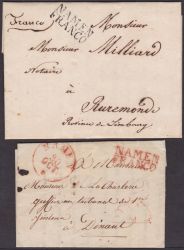 Franco
NAMEN
FRANCO
Monsieur
Monsieur Milliard
Notaire
à
Ruremonde
Province de Limbourg
NAMEN
FRANCO
A Monsieur
Monsieur de la Charlerie
greffier au tribunal de 1re
Instance
à Dinant